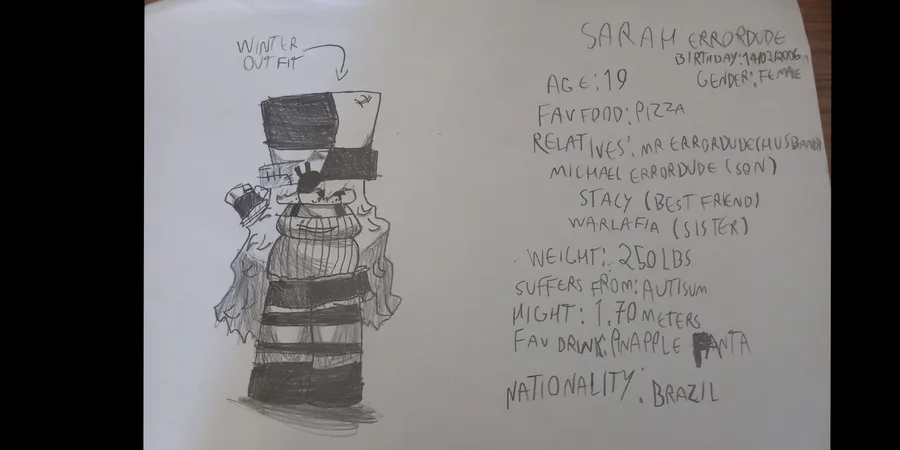 WINTER
OUTFIT
SARAH ERRORDUDE
BIRTHDAY: 14/02/2006
GENDER: FEMALE
AGE: 19
FAV FOOD: PIZZA
RELATIVES: MR ERRORDUDE (HUSBAND)
MICHAEL ERRORDUDE (SON)
STACY (BEST FRIEND)
WARLAFIA (SISTER)
WEIGHT: 250LBS
SUFFERS FROM: AUTISUM
HIGHT: 1.70 METERS
FAV DRINK: PINAPPLE FANTA
NATIONALITY: BRAZIL